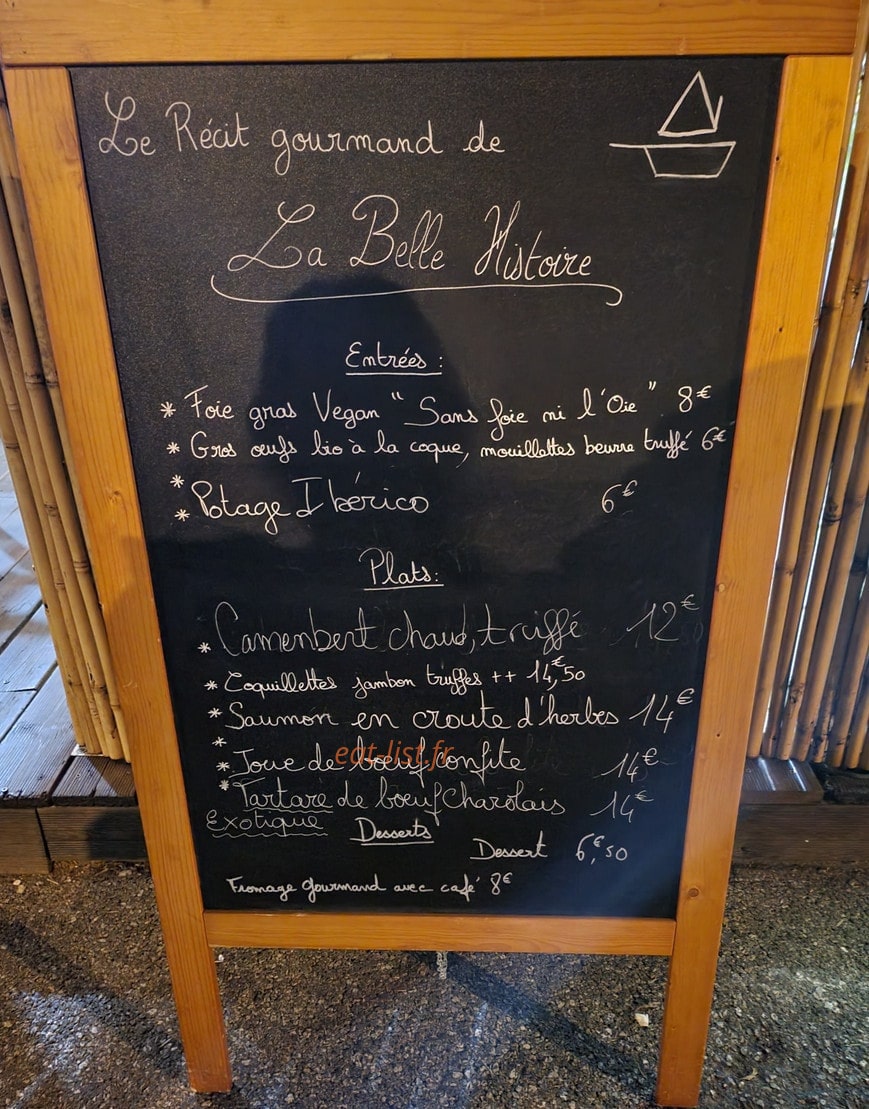 Le Récit gourmand de
La Belle Histoire
Entrées :
* Foie gras Vegan "Sans foie ni l'Oie" 8€
* Gros œufs bio à la coque, mouillettes beurre truffé 6€
*
* Potage Ibérico 6€
Plats:
* Camenbert chaud, truffé 12€
* Coquillettes jambon truffes ++ 14,€50
* Saumon en croute d'herbes 14€
*
* Joue de bœuf confite 14€
* Tartare de bœuf Charolais 14€
Exotique
Desserts
Dessert 6,€50
Fromage gourmand avec café 8€
eat-list.fr